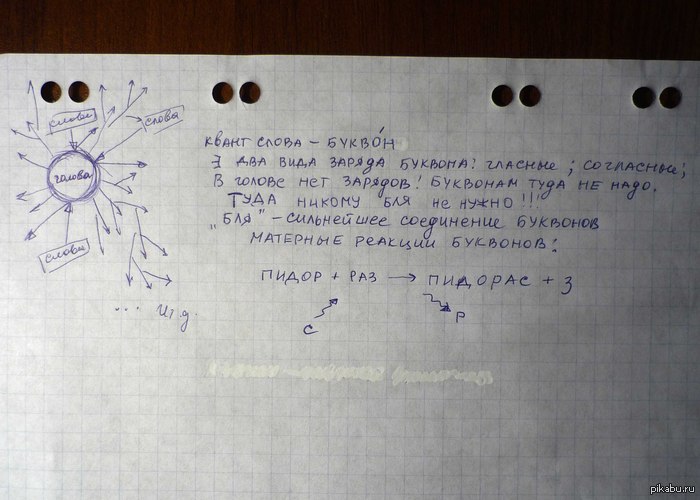 слова
слова
голова
слова
... И т.д.
КВАНТ СЛОВА – БУКВО́Н
∃ ДВА ВИДА ЗАРЯДА БУКВОНА: ГЛАСНЫЕ; СОГЛАСНЫЕ;
В ГОЛОВЕ НЕТ ЗАРЯДОВ! БУКВОНАМ ТУДА НЕ НАДО.
ТУДА НИКОМУ БЛЯ НЕ НУЖНО!!!
„БЛЯ" – СИЛЬНЕЙШЕЕ СОЕДИНЕНИЕ БУКВОНОВ
МАТЕРНЫЕ РЕАКЦИИ БУКВОНОВ:
ПИДОР + РАЗ → ПИДОРАС + З
С Р
pikabu.ru